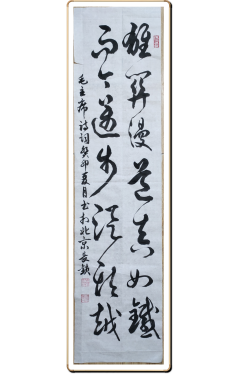 雄关漫道真如铁
而今迈步从头越
毛主席诗词癸卯夏月书于北京